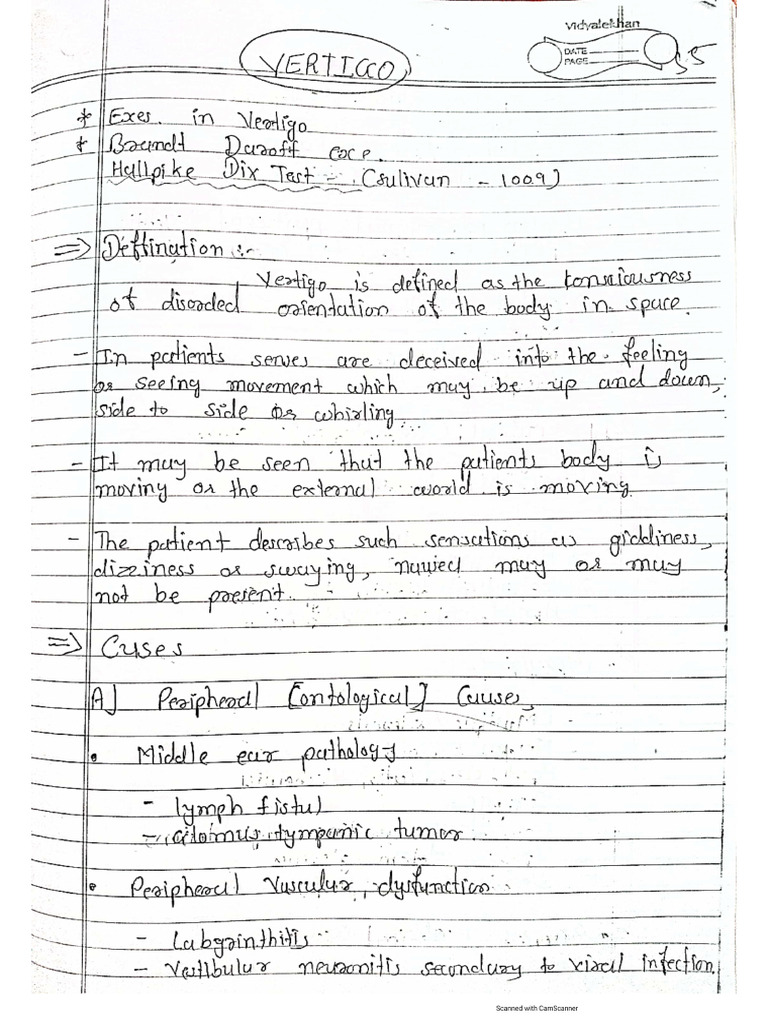 vidyalekhan
DATE
PAGE
35
VERTIGO
* Exes. in Vertigo
* Brandt Daroff exe.
Hallpike Dix Test - (Sulivan - 1009)
⇒ Deffination :-
Vertigo is defined as the consciousness
of disorded orientation of the body in space.
- In patients serves are deceived into the feeling
or seeing movement which may be up and down,
side to side or whirling.
- It may be seen that the patients body is
moving or the external world is moving.
- The patient describes such sensations as giddiness,
dizziness or swaying, may or may
not be present.
⇒ Cuses
A] Peripheral [ontological] Causes,
• Middle ear pathology
- lymph fistul
- tympanic tumor.
• Peripheral Vascular, dysfunction
- Labyrinthitis
- Vestibular neuronitis secondary to viral infection.
Scanned with CamScanner